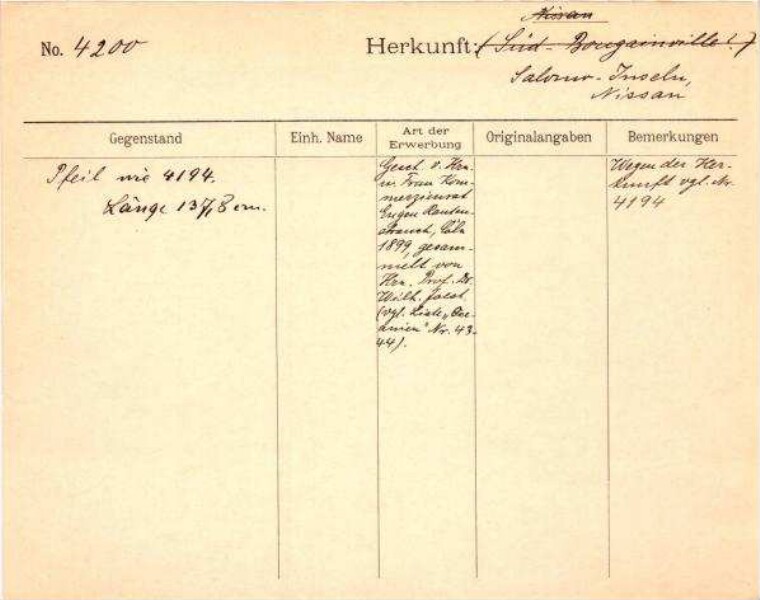 Nissan
No. 4200 Herkunft: (Süd-Bougainville!)
Salomo-Inseln,
Nissan
Gegenstand
Einh. Name
Art der
Erwerbung
Originalangaben
Bemerkungen
Pfeil wie 4194.
Länge 137,8 cm.
Gesch. v. Hrn.
u. Frau Kom-
merzienrat
Eugen Rauten-
strauch, Cöln
1899, gesam-
melt von
Hrn. Prof. Dr.
Wilh. Joest.
(vgl. Liste „Oce-
anien" Nr. 43-
44).
Wegen der Her-
kunft vgl. Nr.
4194